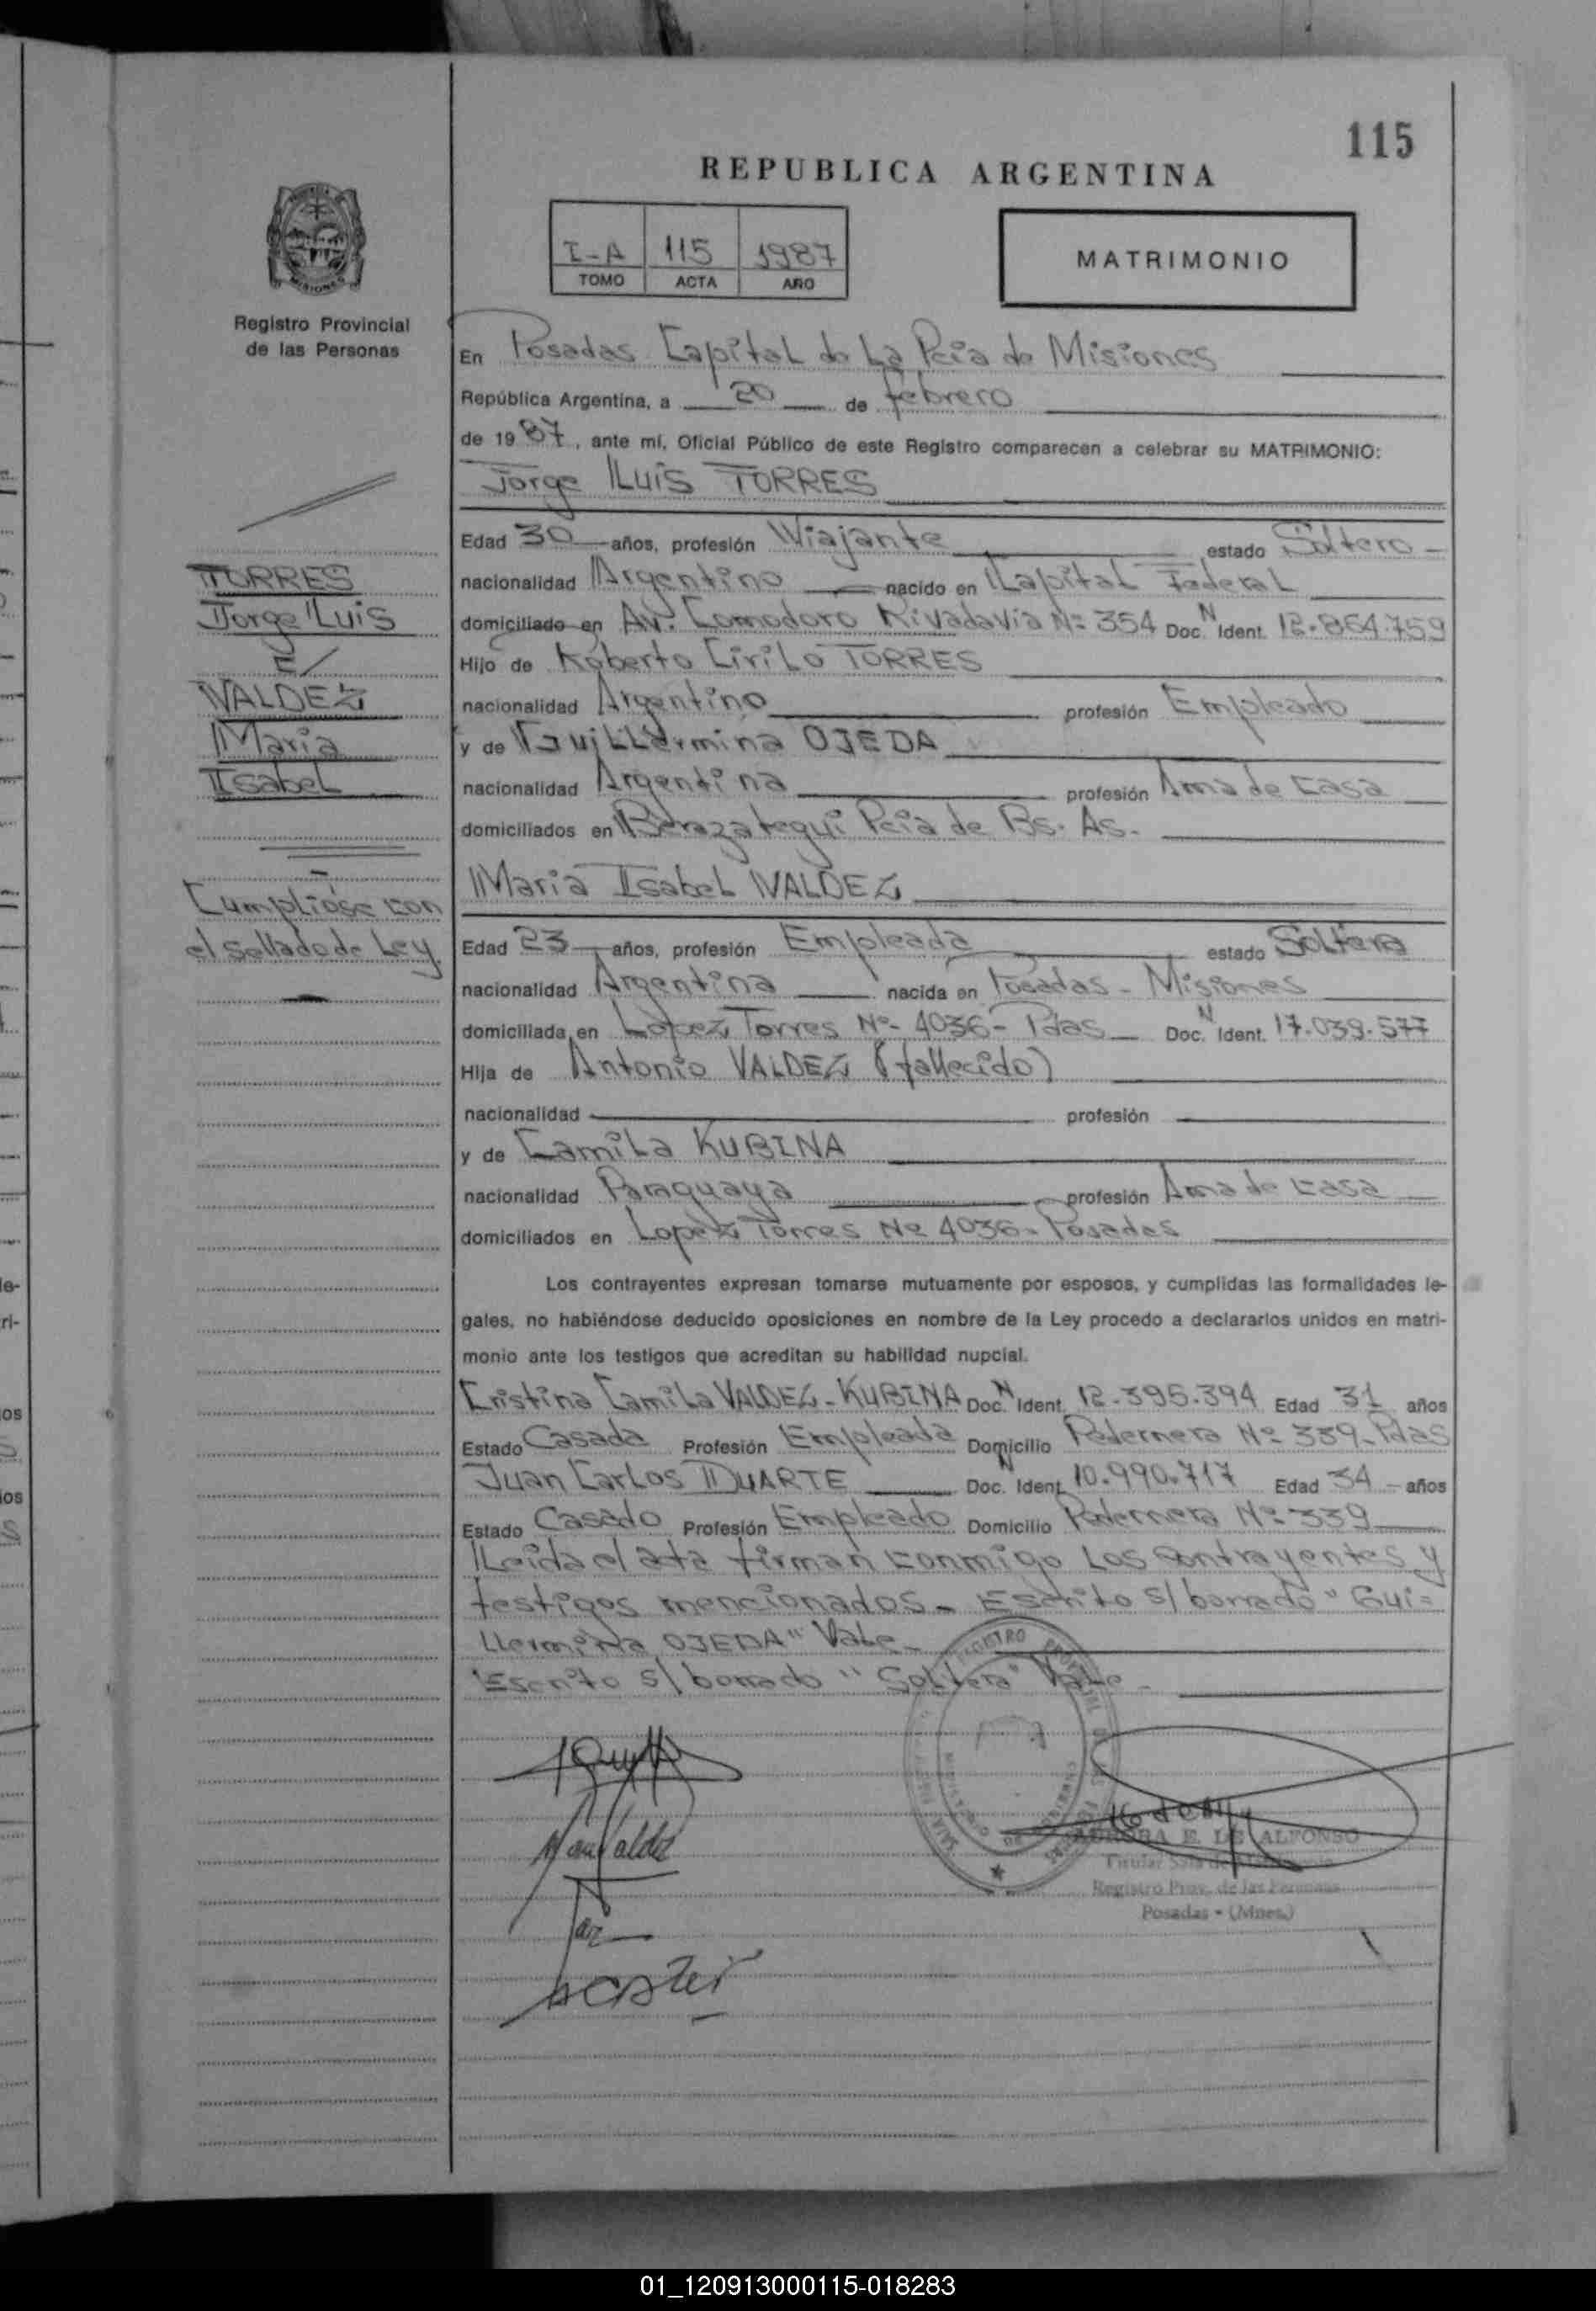 115
REPUBLICA ARGENTINA
I-A 115 1987
TOMO ACTA AÑO
MATRIMONIO
MISIONES
Registro Provincial
de las Personas
En Posadas Capital de La Pcia de Misiones
República Argentina, a 20 de febrero
de 1987, ante mí, Oficial Público de este Registro comparecen a celebrar su MATRIMONIO:
Jorge Luis TORRES
Edad 30 años, profesión Viajante estado Soltero
nacionalidad Argentino nacido en Capital Federal
domiciliado en Av. Comodoro Rivadavia Nº 354 Doc. N Ident. 12.864.759
Hijo de Roberto Cirilo TORRES
nacionalidad Argentino profesión Empleado
y de Guillermina OJEDA
nacionalidad Argentina profesión Ama de casa
domiciliados en Berazategui Pcia de Bs. As.
María Isabel VALDEZ
Edad 23 años, profesión Empleada estado Soltera
nacionalidad Argentina nacida en Posadas - Misiones
domiciliada en Lopez Torres Nº 4036 - Pdas Doc. N Ident. 17.039.577
Hija de Antonio VALDEZ (fallecido)
nacionalidad profesión
y de Camila KUBINA
nacionalidad Paraguaya profesión Ama de casa
domiciliados en Lopez Torres Nº 4036 - Posadas
Los contrayentes expresan tomarse mutuamente por esposos, y cumplidas las formalidades le-
gales, no habiéndose deducido oposiciones en nombre de la Ley procedo a declararlos unidos en matri-
monio ante los testigos que acreditan su habilidad nupcial.
Cristina Camila VALDEZ - KUBINA Doc. N Ident. 12.395.394 Edad 31 años
Estado Casada Profesión Empleada Domicilio Pedernera Nº 339 - Pdas
Juan Carlos DUARTE Doc. N Ident. 10.990.717 Edad 34 años
Estado Casado Profesión Empleado Domicilio Pedernera Nº 339
Leida el acta firman conmigo Los contrayentes y
testigos mencionados - Escrito s/ borrado "Gui=
llermina OJEDA" Vale -
Escrito s/ borrado "Soltera" Vale -
TORRES
Jorge Luis
C/
VALDEZ
María
Isabel
Cumpliose con
el sellado de Ley.
M Valdez
AURORA E. DE ALFONSO
Titular Sala de
Registro Prov. de las Personas
Posadas - (Mnes.)
01_120913000115-018283